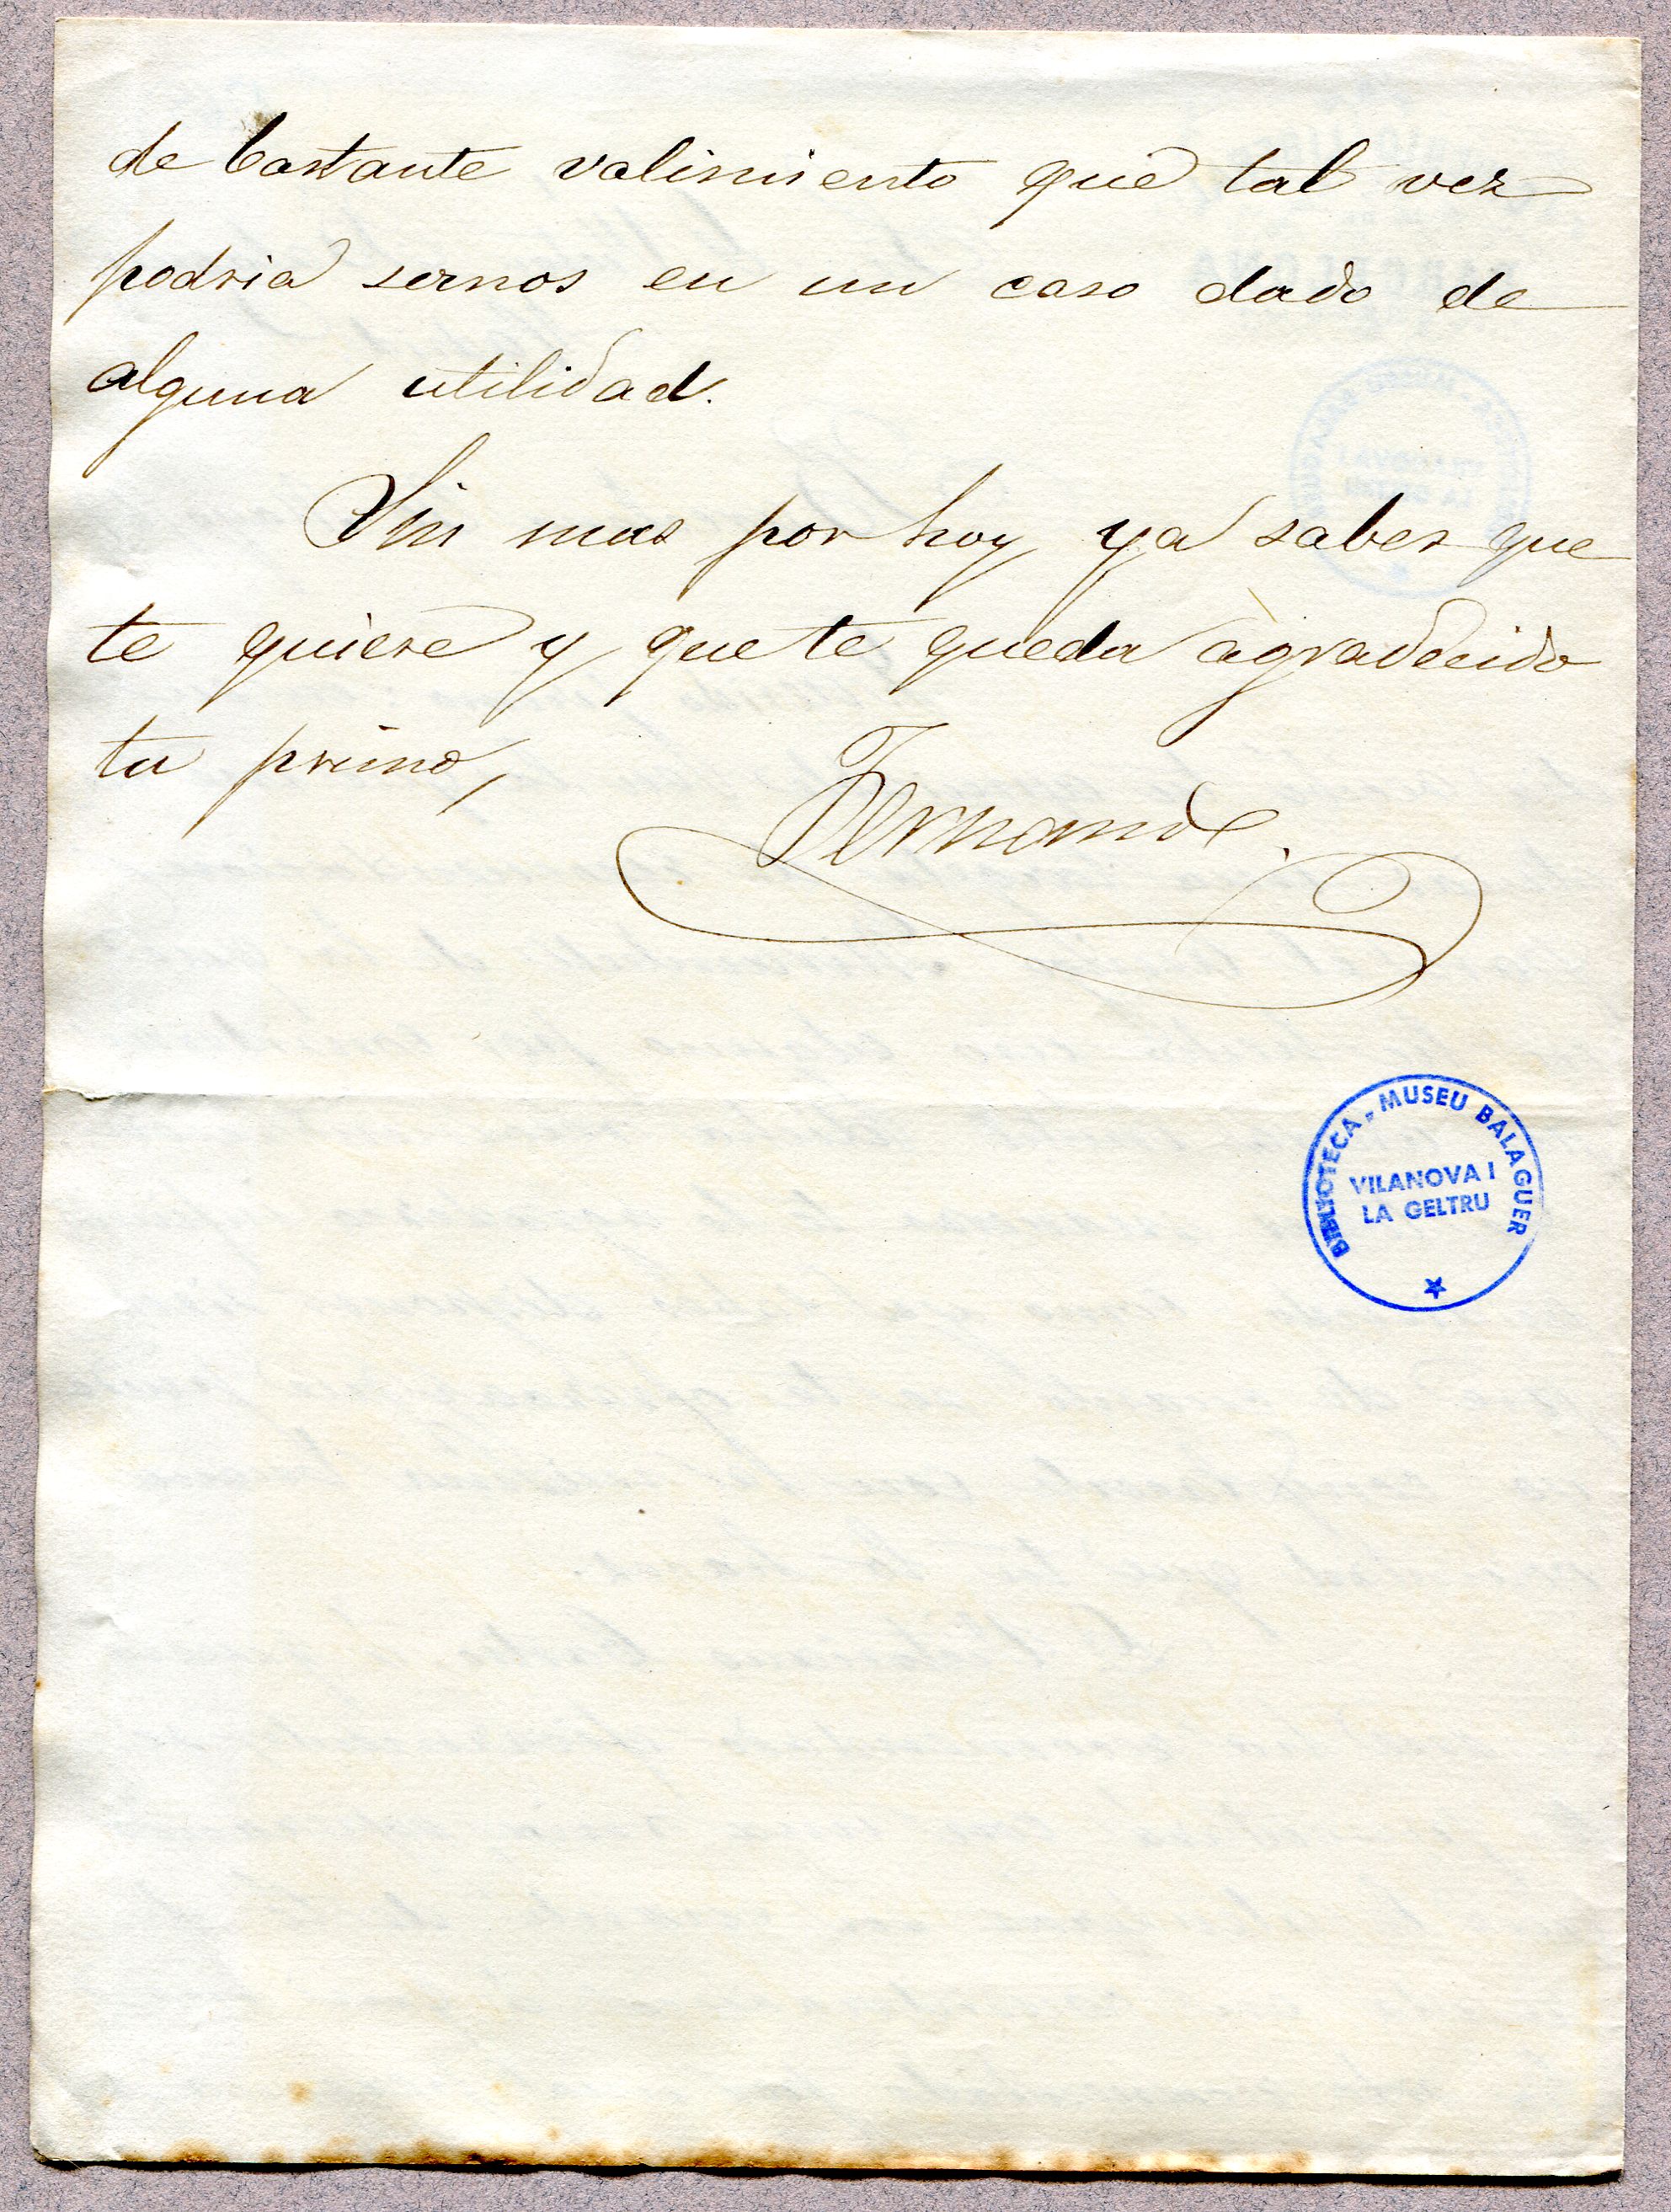 de bastante valimiento que tal vez
podria sernos en un caso dado de
alguna utilidad.
Sin mas por hoy ya sabes que
te quiere y que te queda agradecido
tu primo,
Fernando.
BIBLIOTECA - MUSEU BALAGUER
VILANOVA I
LA GELTRU